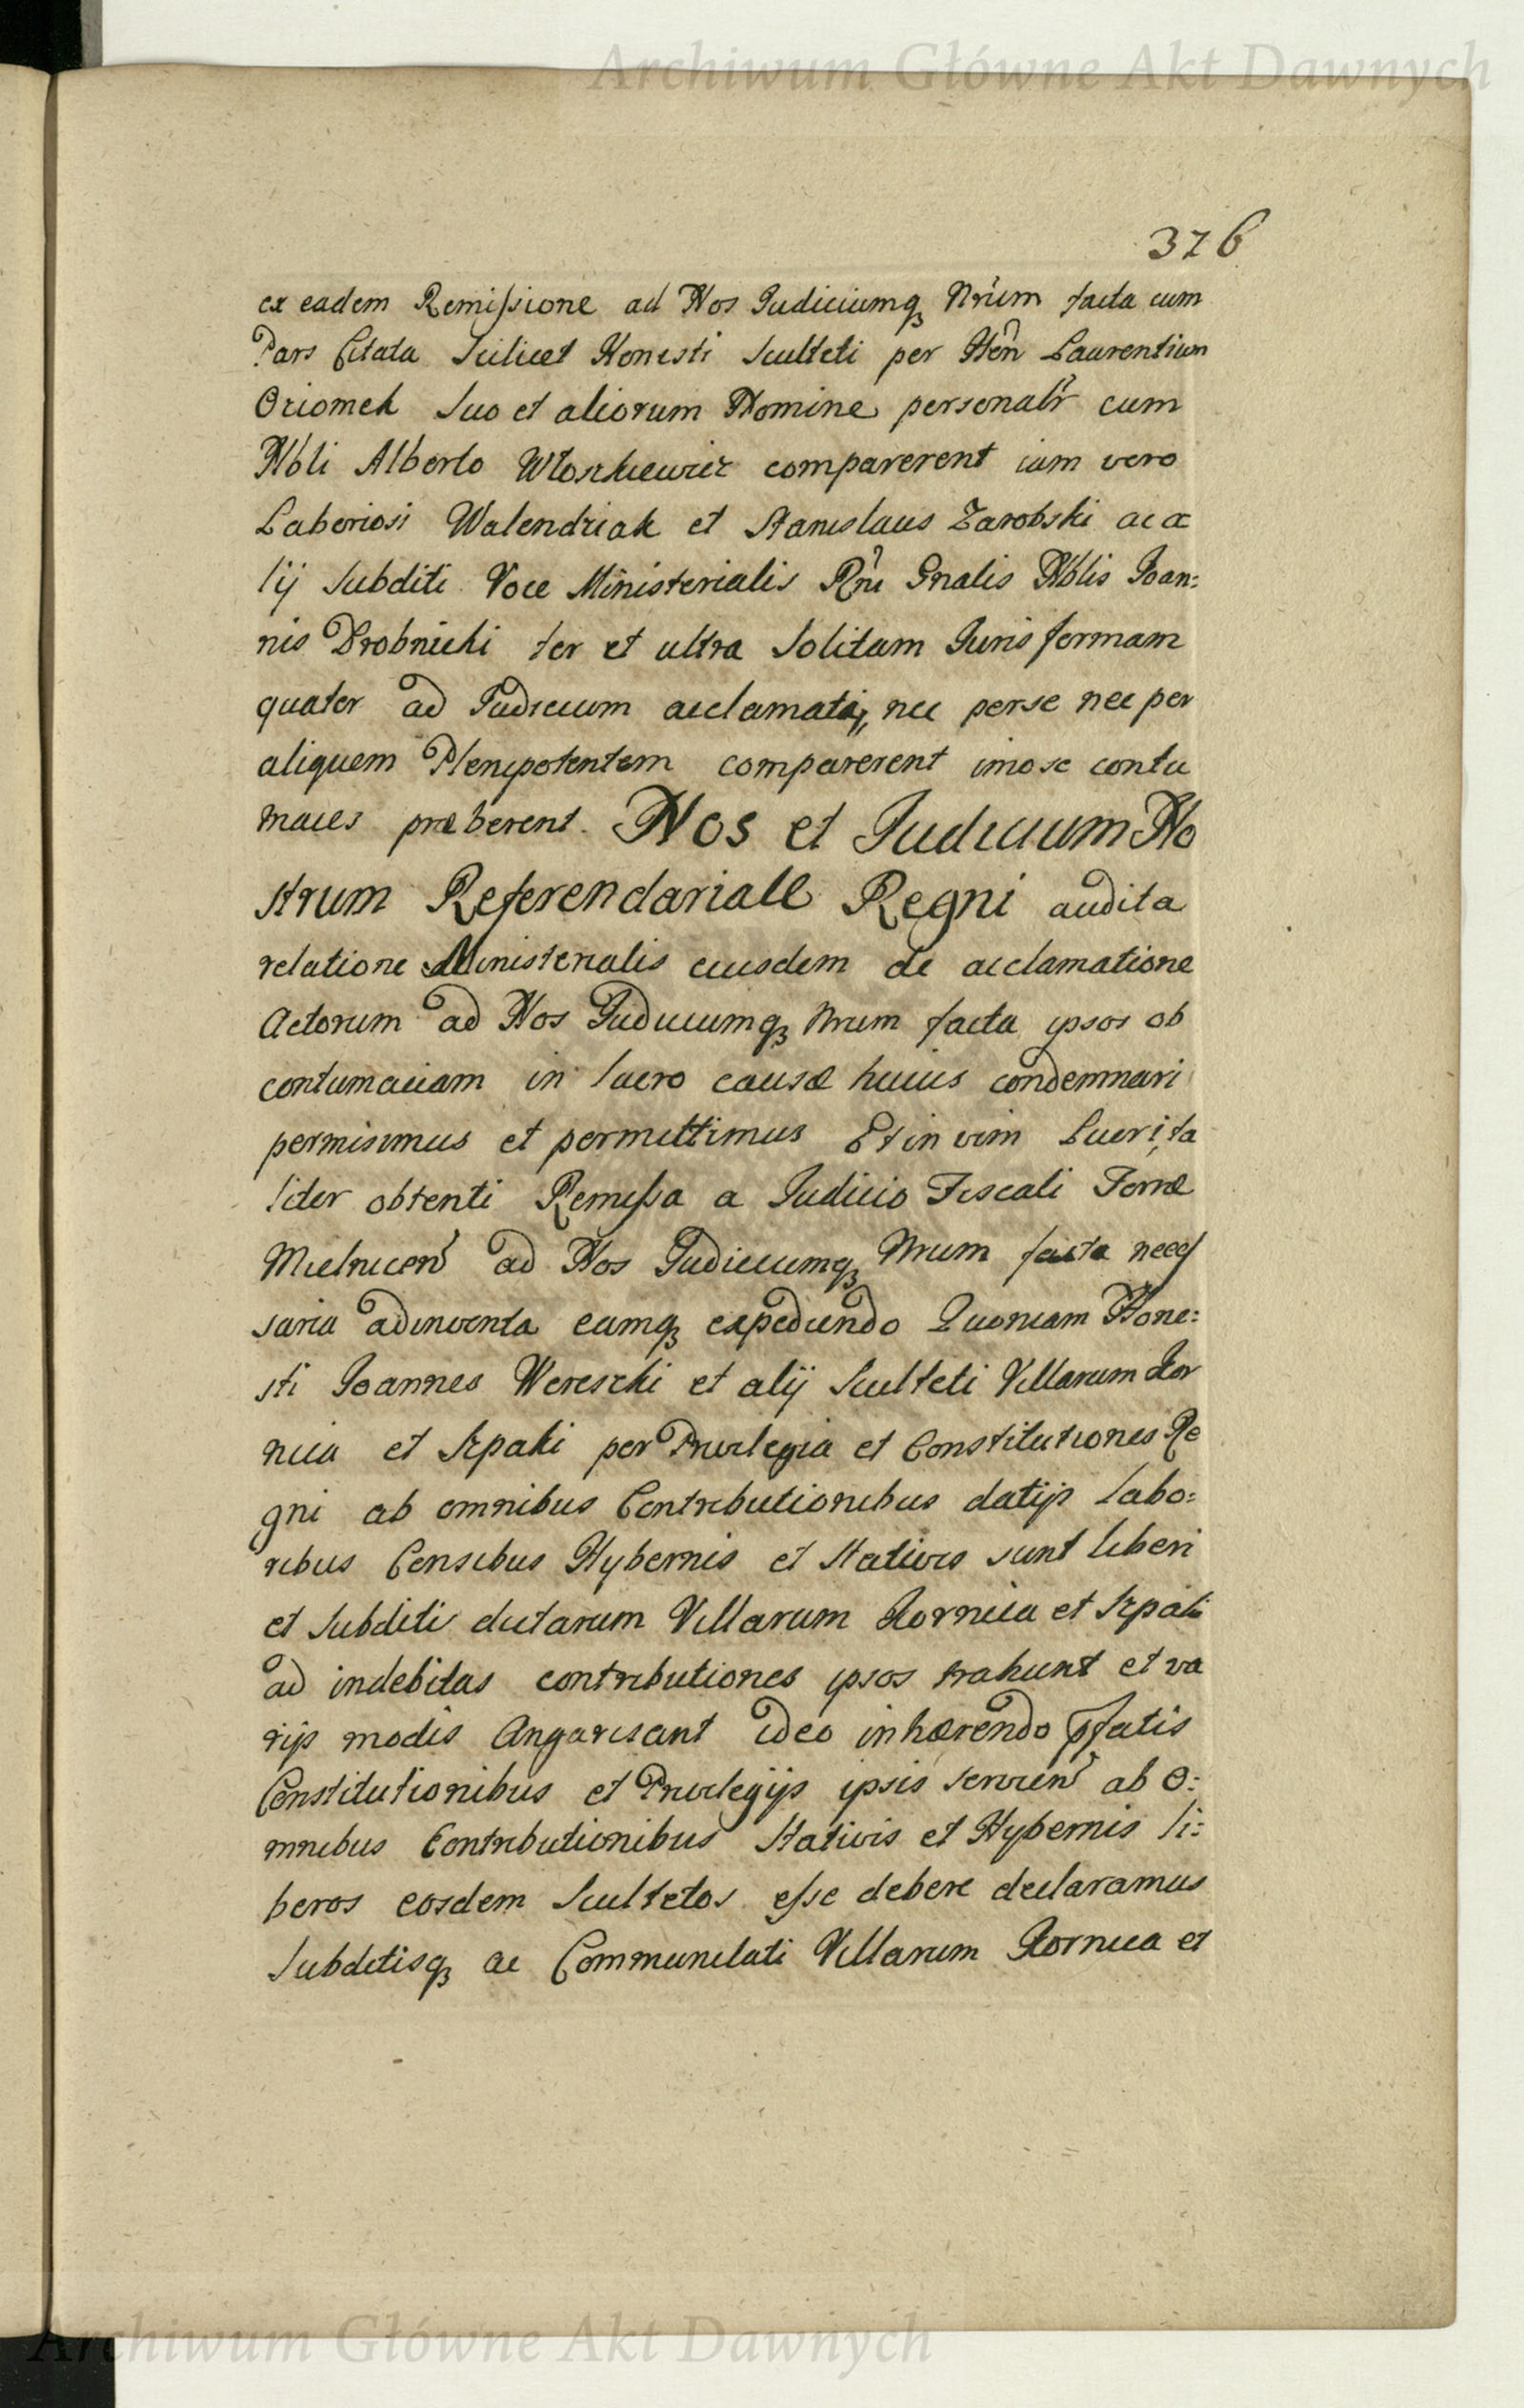 Archiwum Główne Akt Dawnych
376
ex eadem Remissione ad Nos Iudiciumq₃ Nr̃um facta cum
Pars Citata Scilicet Honesti Sculteti per Hon̑ Laurentium
Oziomek Suo et aliorum Nomine personalȓ cum
Nbli Alberto Włoszkiewicz comparerent iam vero
Laboriosi Walendziak et Stanislaus Zarobski ac a
lij Subditi Voce Ministerialis Rn̑i Gnalis Nblis Ioan:
nis Drobnicki ter et ultra Solitam Iuris formam
quater ad Iudicium acclamati, nec per se nec per
aliquem Plenipotentem comparerent imo se contu
maces præberent. Nos et Iudicium No
strum Referendariale Regni audita
relatione Ministerialis eiusdem de acclamatione
Actorum ad Nos Iudiciumq₃ Nrum facta ipsos ob
contumaciam in lucro causæ huius condemnari
permisimus et permittimus Et in vim Lucri ta
liter obtenti Remissa a Iudicio Fiscali Terræ
Mielnicen̑ ad Nos Iudiciumq₃ Nrum facta necess
saria adinventa eamq₃ expediendo Quoniam Hone:
sti Ioannes Wereszki et alij Sculteti Villarum Kor
nica et Szpaki per Privilegia et Constitutiones Re
gni ab omnibus Contributionibus datijs labo:
ribus Censibus Hybernis et Stativis sunt liberi
et Subditi dictarum Villarum Kornica et Szpaki
ad indebitas contributiones ipsos trahunt et va
rijs modis Angarisant ideo inhærendo pfatis
Constitutionibus et Privilegijs ipsis servien̑ ab O:
mnibus Contributionibus Stativis et Hybernis li:
beros eosdem Scultetos esse debere declaramus
Subditisq₃ ac Communitati Villarum Kornica et
Archiwum Główne Akt Dawnych